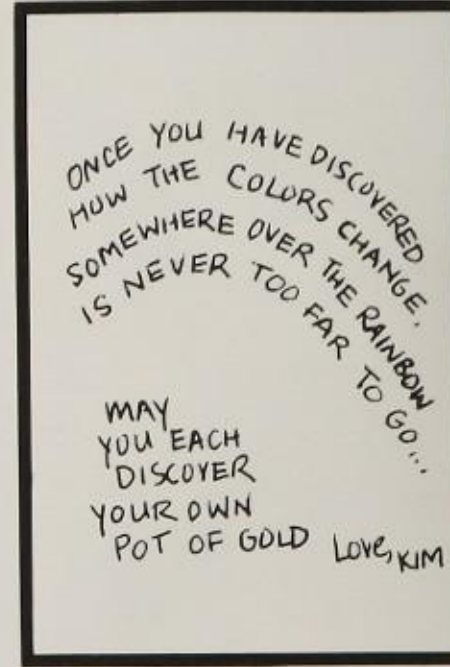 ONCE YOU HAVE DISCOVERED
HOW THE COLORS CHANGE.
SOMEWHERE OVER THE RAINBOW
IS NEVER TOO FAR TO GO...
MAY
YOU EACH
DISCOVER
YOUR OWN
POT OF GOLD
Love, KIM